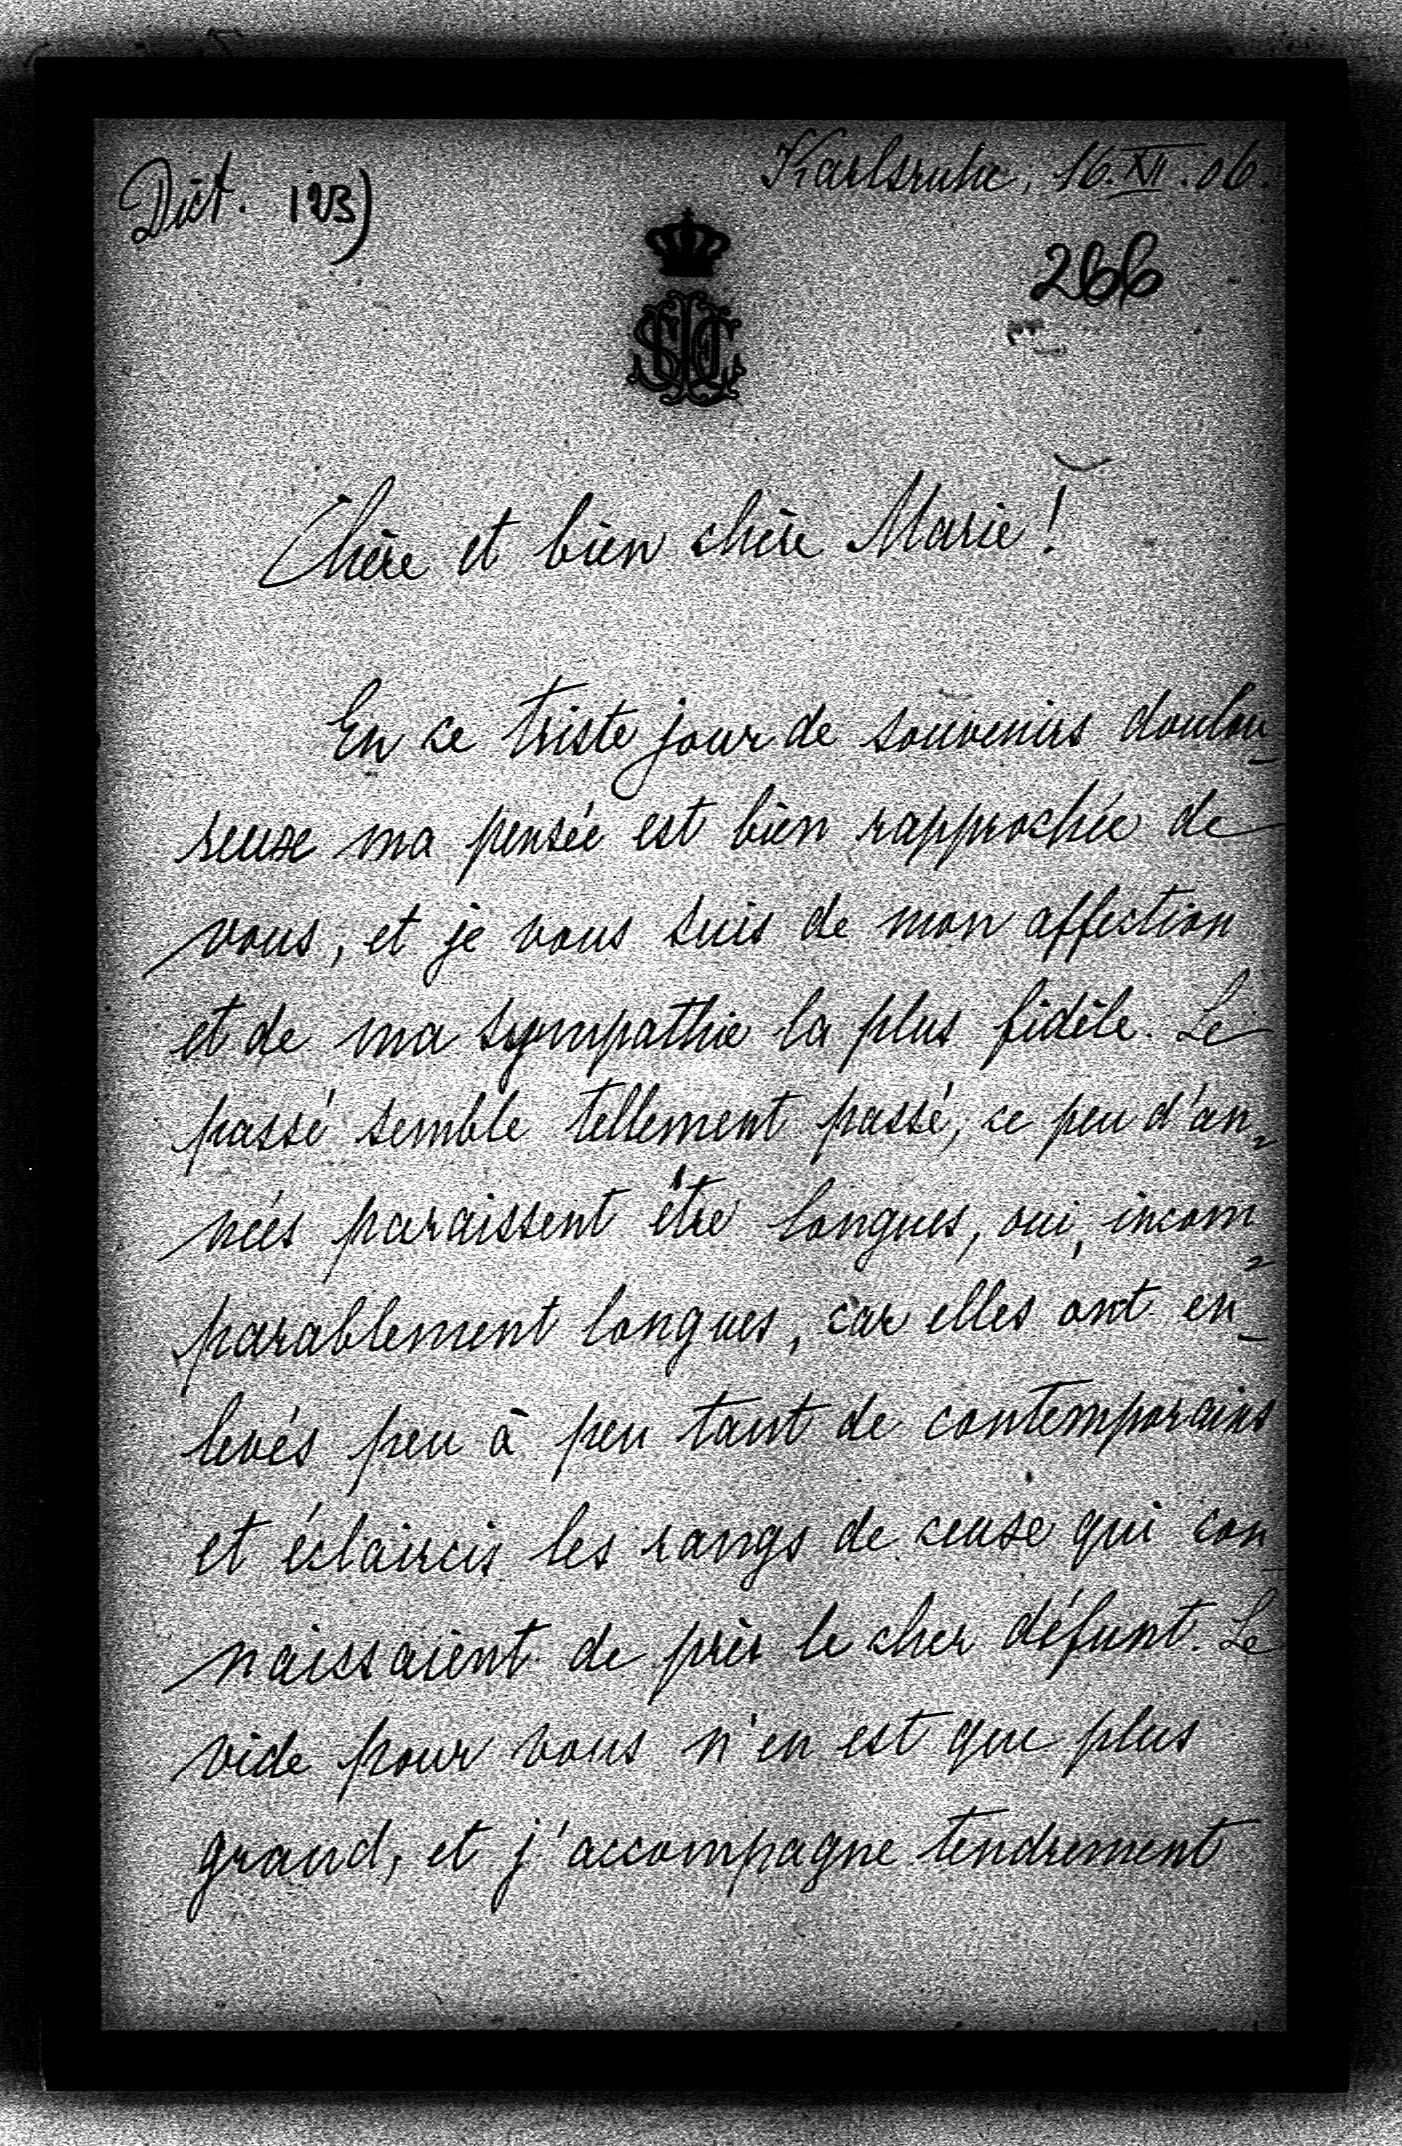 Dict. 123)
Karlsruhe, 16.XII.06.
266
Chère et bien chère Marie!
En ce triste jour de souvenirs doulou-
reuse ma pensée est bien rapprochée de
vous, et je vous suis de mon affection
et de ma sympathie la plus fidèle. Le
passé semble tellement passé, ce peu d'an-
nées paraissent être longues, oui, incom-
parablement longues, car elles ont en-
levés peu à peu tant de contemporains
et éclaircis les rangs de ceuse qui con-
naissaient de près le cher défunt. Le
vide pour vous n'en est que plus
grand, et j'accompagne tendrement